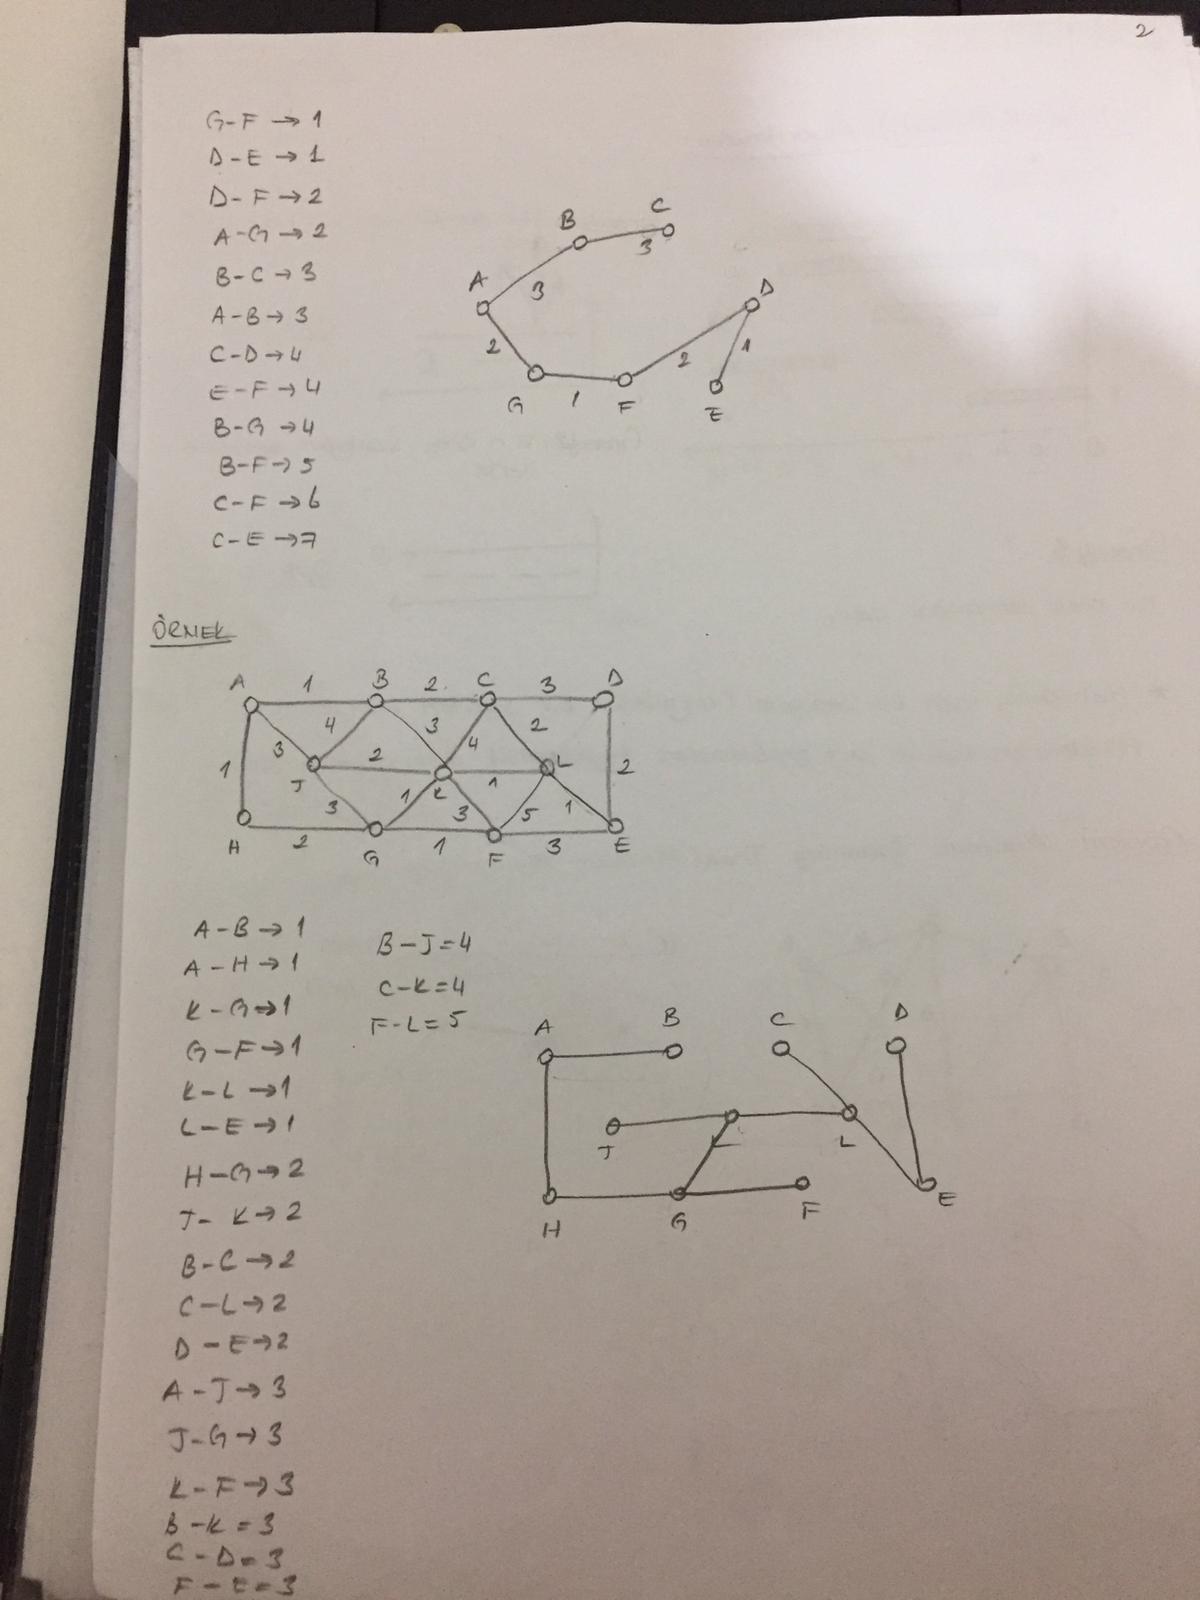 2
G-F → 1
D-E → 1
D-F → 2
A-G → 2
B-C → 3
A-B → 3
C-D → 4
E-F → 4
B-G → 4
B-F → 5
C-F → 6
C-E → 7
B C
3
A 3 D
2 2 1
G 1 F E
ÖRNEK
A 1 B 2 C 3 D
4 3 2
3 2 4 L
1 J 1 K 1 2
3 3 5 1
H 2 G 1 F 3 E
A-B → 1
A-H → 1
K-G → 1
G-F → 1
K-L → 1
L-E → 1
H-G → 2
J-K → 2
B-C → 2
C-L → 2
D-E → 2
A-J → 3
J-G → 3
K-F → 3
B-K = 3
C-D = 3
F-E = 3
B-J = 4
C-K = 4
F-L = 5
A B C D
J L
H G F E